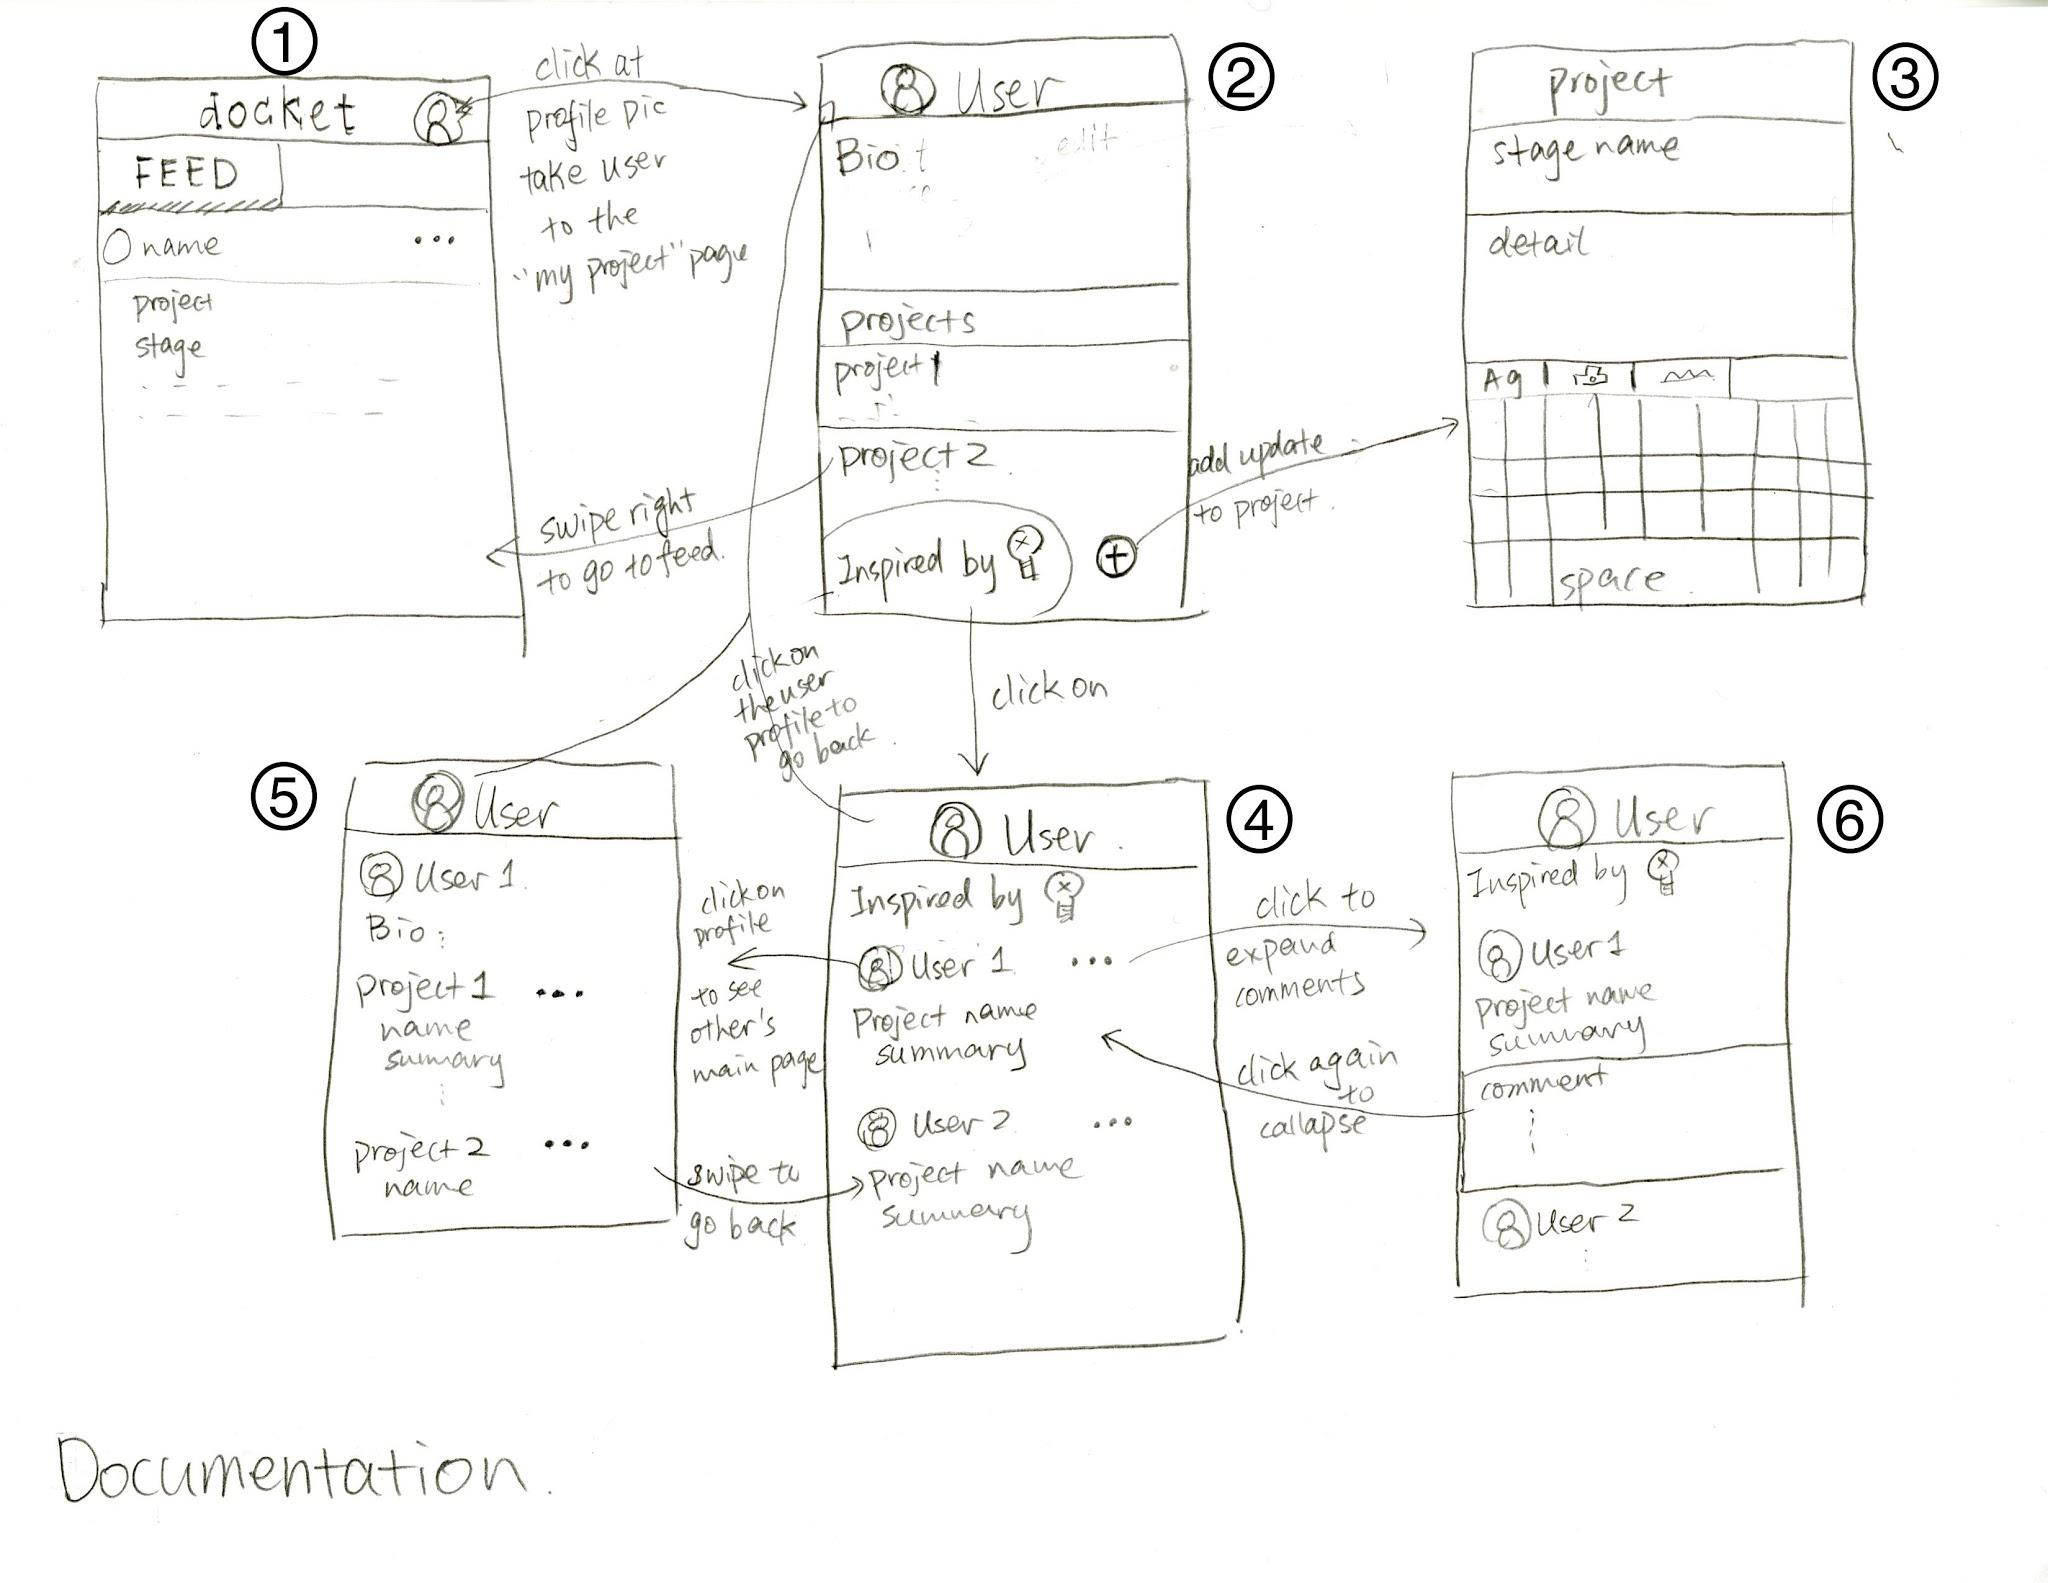 ①
docket
FEED
name
...
project
stage
click at
profile pic
take user
to the
"my project" page
②
User
Bio
edit
projects
project 1
project 2
Inspired by
+
swipe right
to go to feed.
add update
to project.
③
project
stage name
detail
Ag
space
click on
the user
profile to
go back
click on
⑤
User
User 1
Bio :
project 1 ...
name
summary
project 2 ...
name
click on
profile
to see
other's
main page
swipe to
go back
④
User
Inspired by
User 1 ...
Project name
summary
User 2 ...
Project name
summary
click to
expand
comments
click again
to
collapse
⑥
User
Inspired by
User 1
Project name
summary
comment
User 2
Documentation.